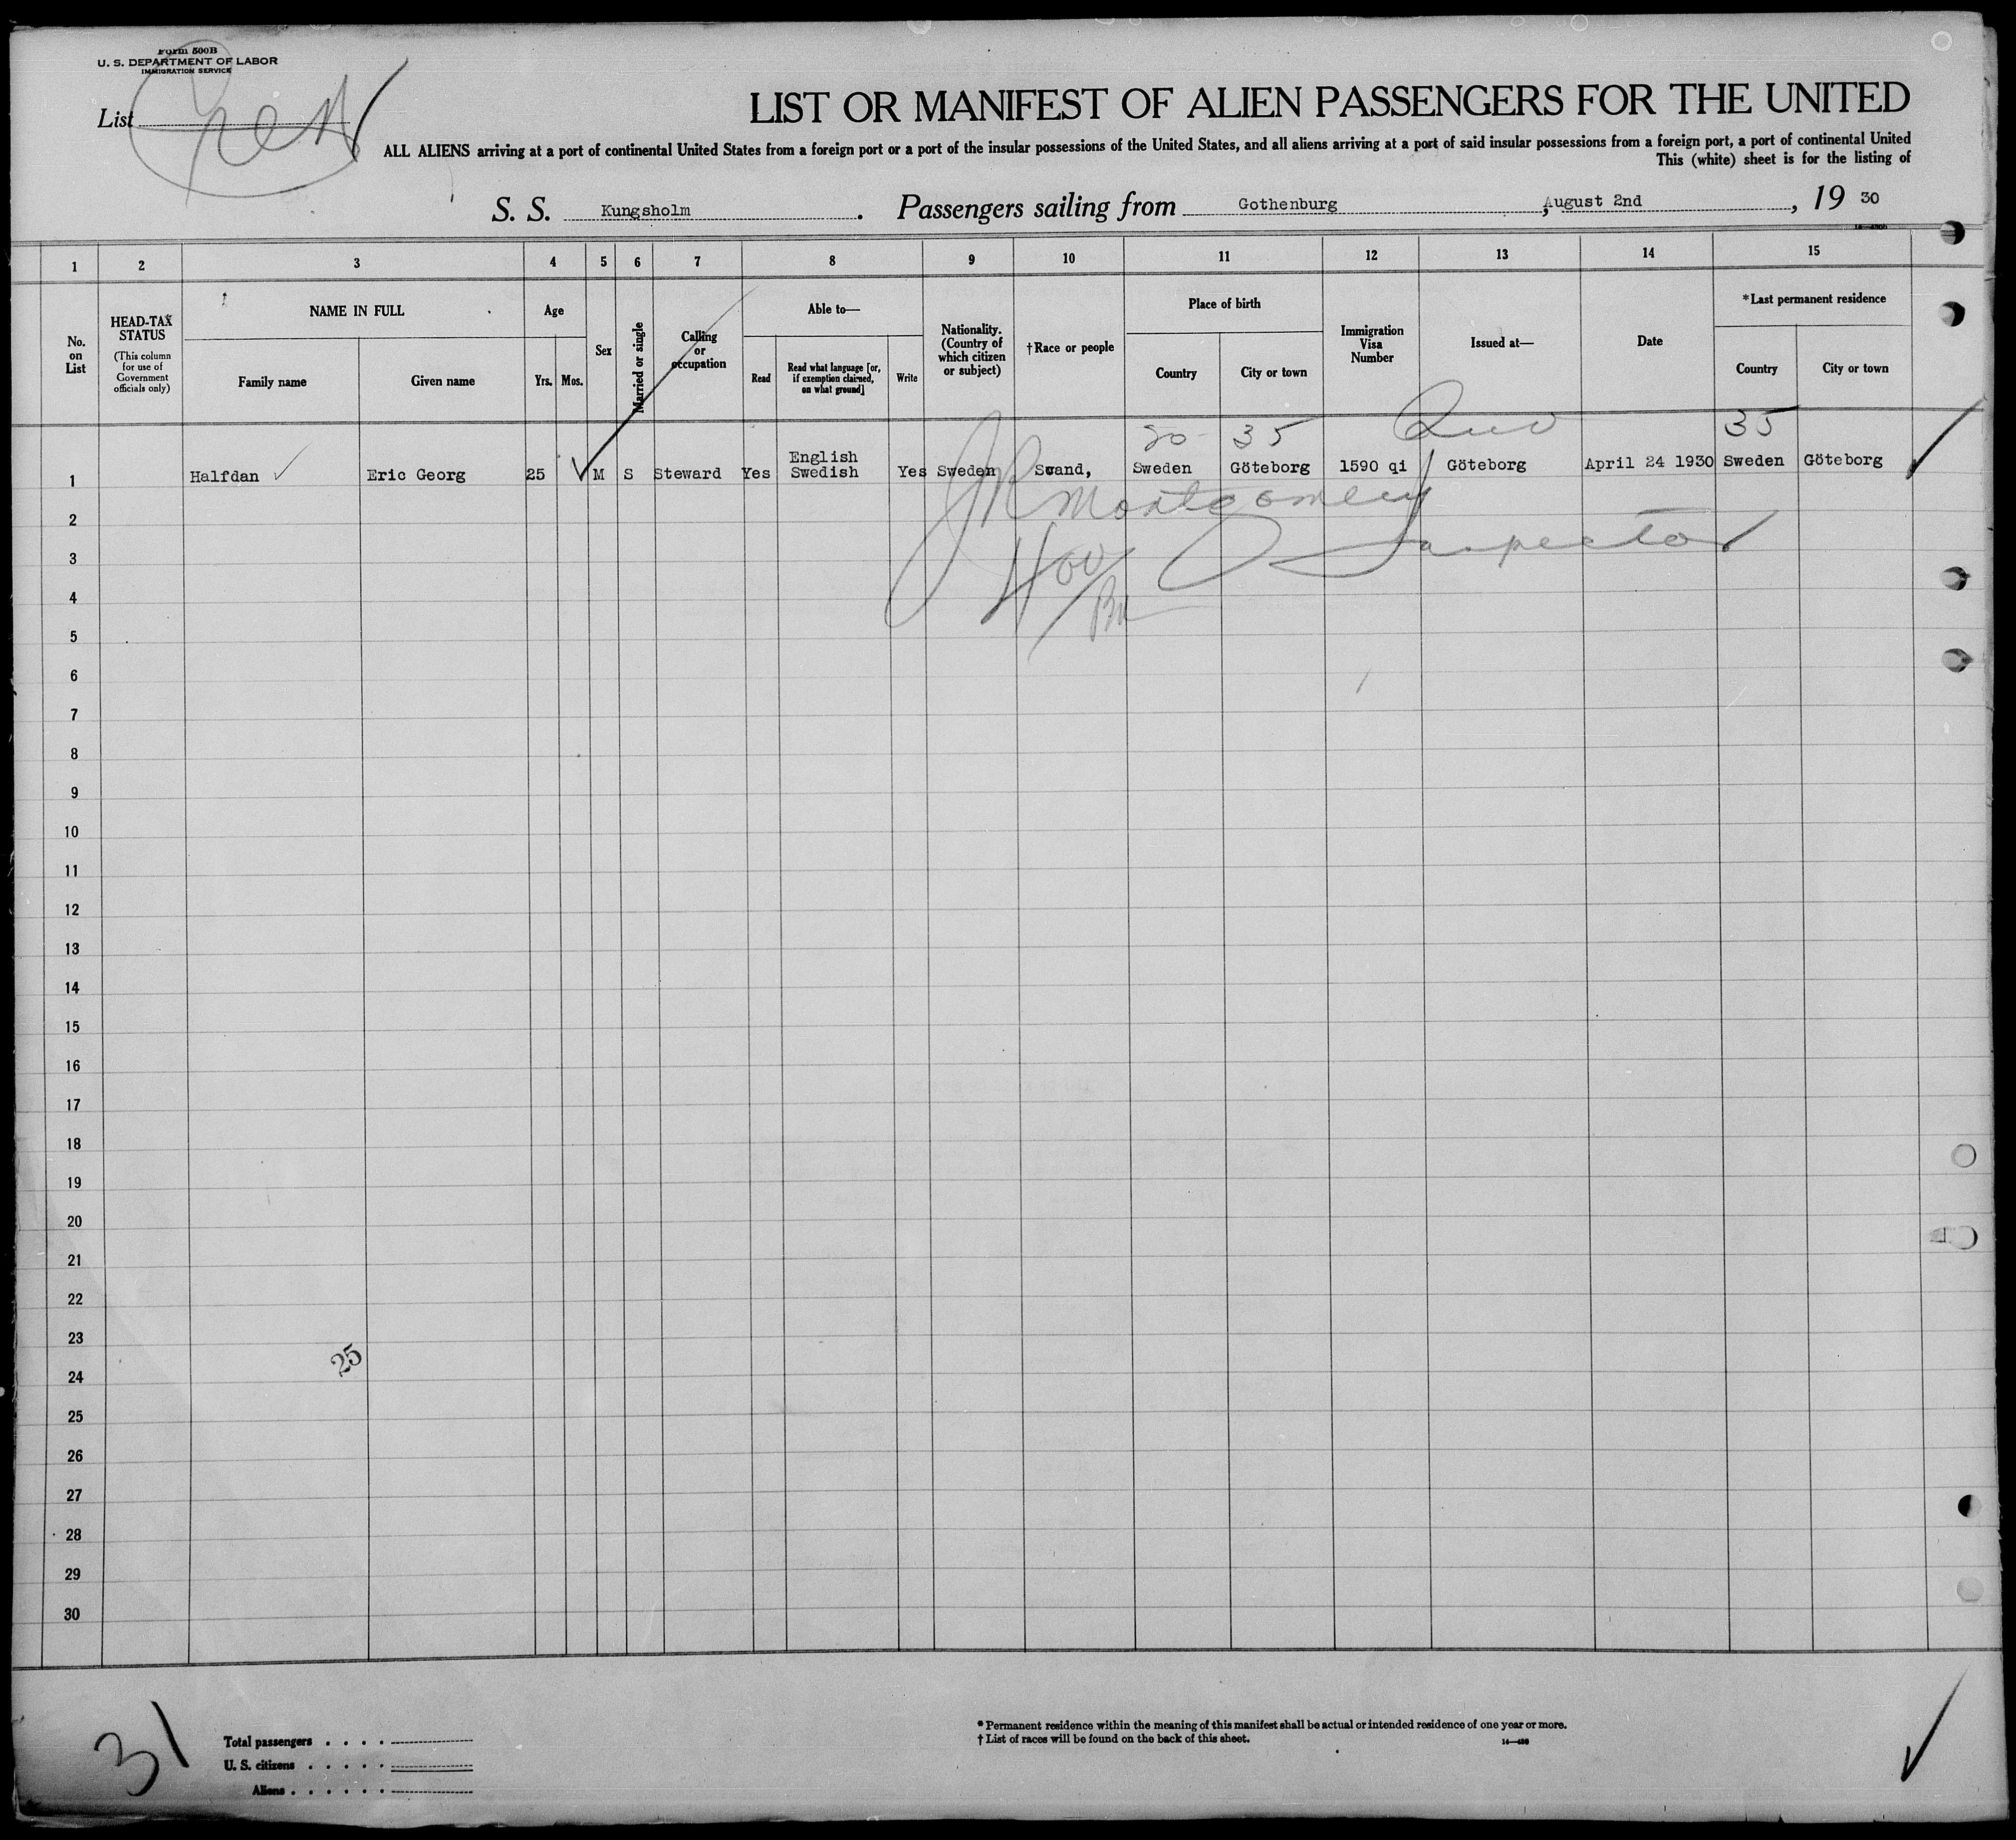 Form 500B
U. S. DEPARTMENT OF LABOR
IMMIGRATION SERVICE
List
LIST OR MANIFEST OF ALIEN PASSENGERS FOR THE UNITED
ALL ALIENS arriving at a port of continental United States from a foreign port or a port of the insular possessions of the United States, and all aliens arriving at a port of said insular possessions from a foreign port, a port of continental United
This (white) sheet is for the listing of
S. S. Kungsholm . Passengers sailing from Gothenburg , August 2nd , 19 30
1 2 3 4 5 6 7 8 9 10 11 12 13 14 15
No. on List
HEAD-TAX STATUS
(This column for use of Government officials only)
NAME IN FULL
Family name
Given name
Age
Yrs. Mos.
Sex
Married or single
Calling or occupation
Able to—
Read
Read what language [or, if exemption claimed, on what ground]
Write
Nationality. (Country of which citizen or subject)
†Race or people
Place of birth
Country
City or town
Immigration Visa Number
Issued at—
Date
*Last permanent residence
Country
City or town
35 35
English
1 Halfdan Eric Georg 25 M S Steward Yes Swedish Yes Sweden Scand, Sweden Göteborg 1590 qi Göteborg April 24 1930 Sweden Göteborg
Montgomery
2
Inspector
3
4
5
6
7
8
9
10
11
12
13
14
15
16
17
18
19
20
21
22
23
25
24
25
26
27
28
29
30
31
Total passengers . . . .
U. S. citizens . . . . .
Aliens . . . . . .
* Permanent residence within the meaning of this manifest shall be actual or intended residence of one year or more.
† List of races will be found on the back of this sheet.